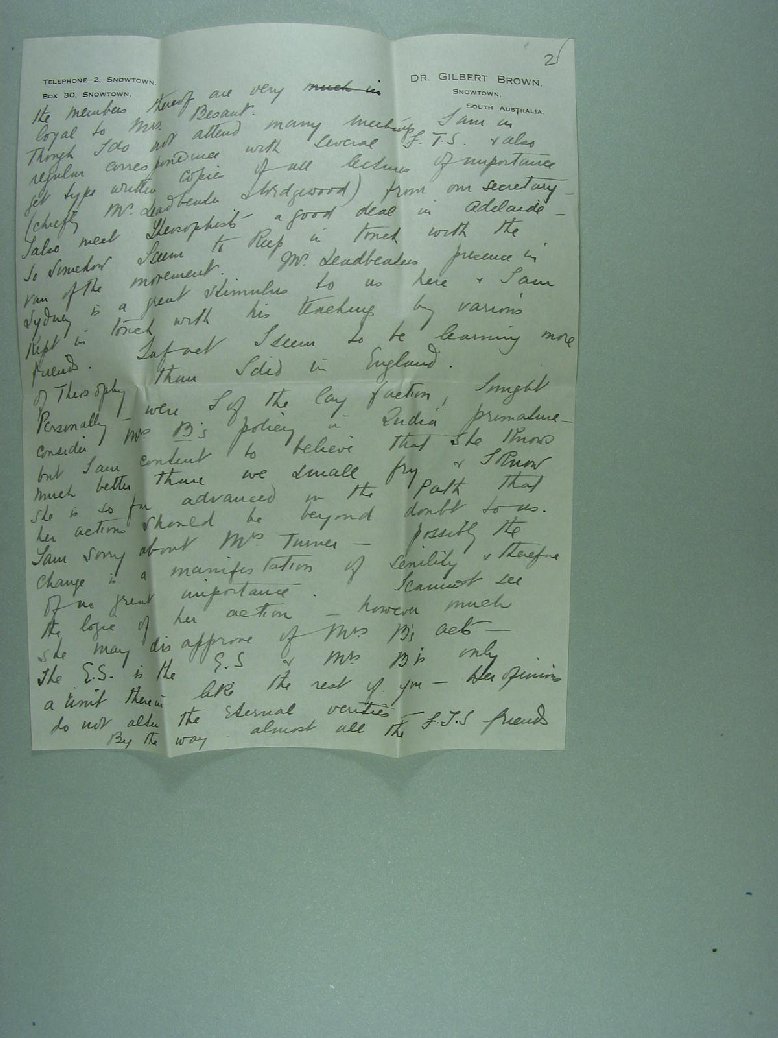 2/
TELEPHONE 2, SNOWTOWN.
BOX 30, SNOWTOWN.
DR. GILBERT BROWN,
SNOWTOWN,
SOUTH AUSTRALIA.
the members thereof are very much in
loyal to Mrs. Besant.
Though I do not attend many meetings I am in
regular correspondence with several F.T.S. & also
get type written copies of all lectures of importance
(chiefly Mr. Leadbeater & Wedgwood) from our secretary —
I also meet Theosophists a good deal in Adelaide —
So somehow seem to keep in touch with the
van of the movement. Mr. Leadbeaters presence in
Sydney is a great stimulus to us here & I am
kept in touch with his teaching by various
friends. In fact I seem to be learning more
of Theosophy than I did in England.
Personally — were I of the lay faction, I might
consider Mrs B's policy in India premature —
but I am content to believe that she knows
much better than we small fry & I know
she is so far advanced on the Path that
her actions should be beyond doubt to us.
I am sorry about Mrs Turner — possibly the
change is a manifestation of senility & therefore
of no great importance. I cannot see
the logic of her action — however much
she may disapprove of Mrs B's acts —
The E.S. is the E.S & Mrs B is only
a unit therein like the rest of you — Her opinions
do not alter the Eternal verities —
By the way almost all the F.T.S friends